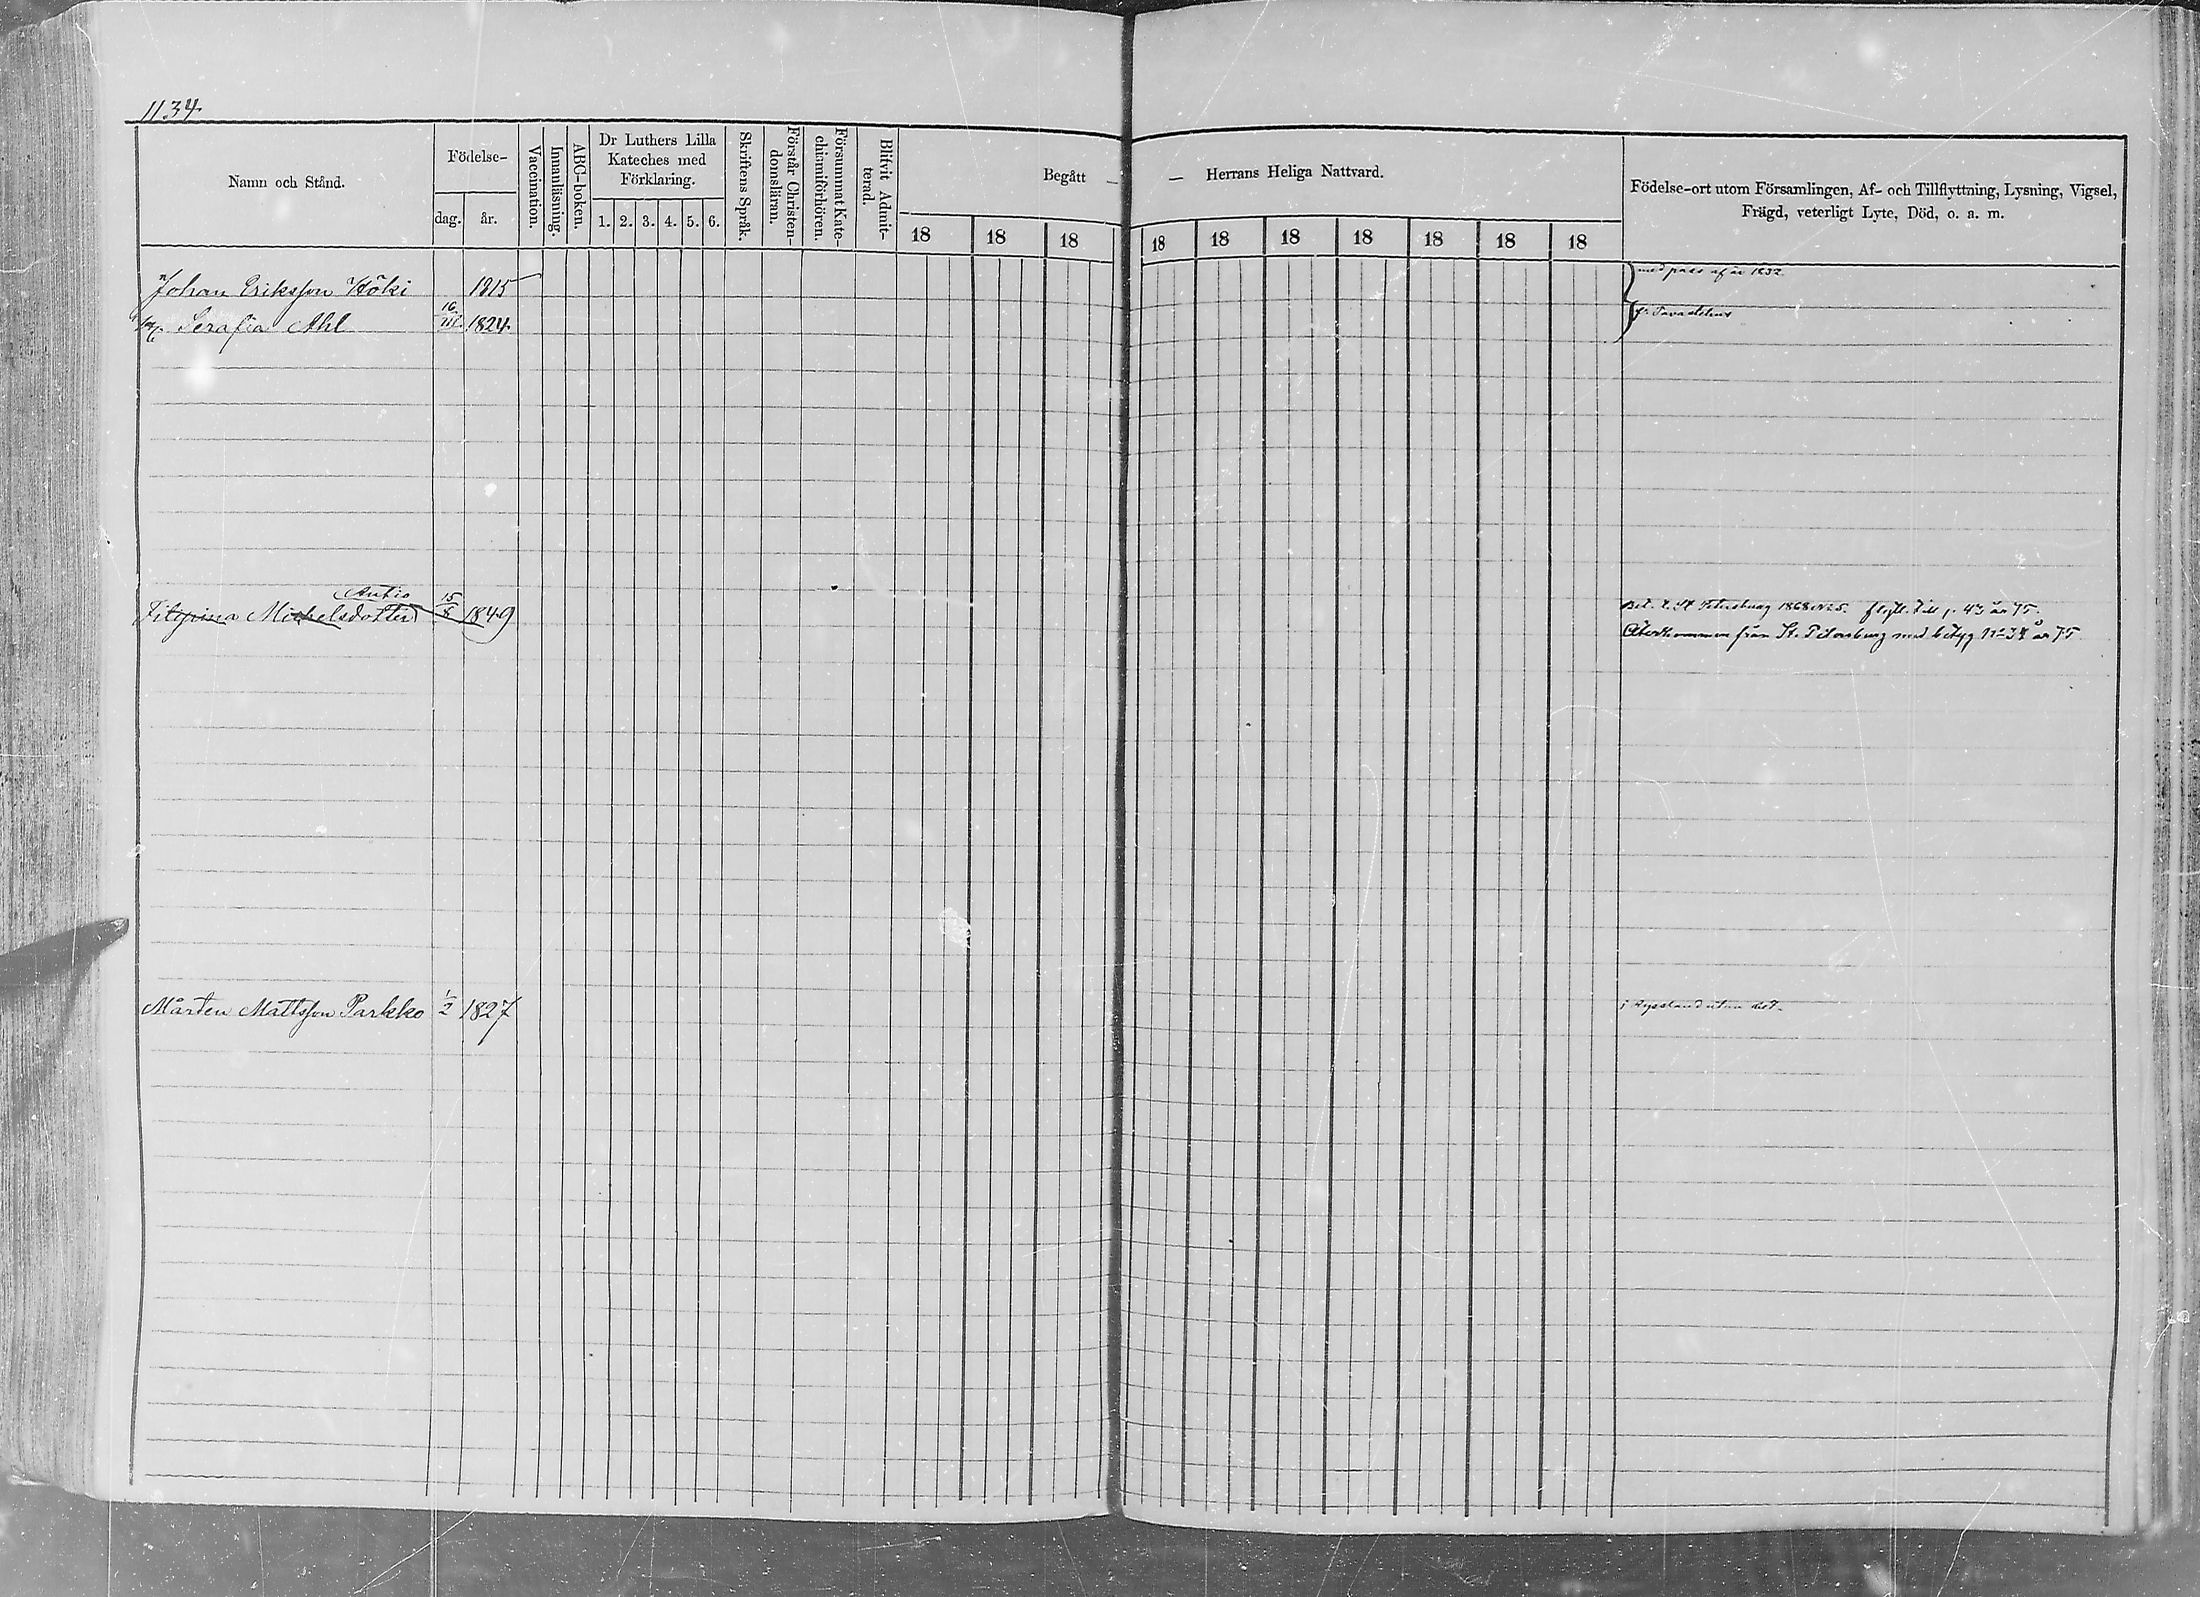 1134.
Namn och Stånd.
Födelse-
dag.
år.
Vaccination.
Innanläsning.
ABC-boken.
Dr Luthers Lilla
Kateches med
Förklaring.
1. 2. 3. 4. 5. 6.
Skriftens Språk.
Förstår Christen-
domsläran.
Försummat Kate-
chismiförhören.
Blifvit Admit-
terad.
Begått —
— Herrans Heliga Nattvard.
18 18 18 18 18 18 18 18 18 18
Födelse-ort utom Församlingen, Af- och Tillflyttning, Lysning, Vigsel,
Frägd, veterligt Lyte, Död, o. a. m.
Johan Eriksson Köki 1815 med pass af år 1852
Serafia Ahl 16/III 1824. fr. Tavastehus
Antio
Filipina Michelsdotter 15/8 1849 Bet. t. St Petersburg 1868 No 5. flytt. till p. 43 år 75.
Återkommen från St. Petersburg med betyg No 34 år 75
Mårten Mattsson Parkko 1/2 1827 i Ryssland utan bet.